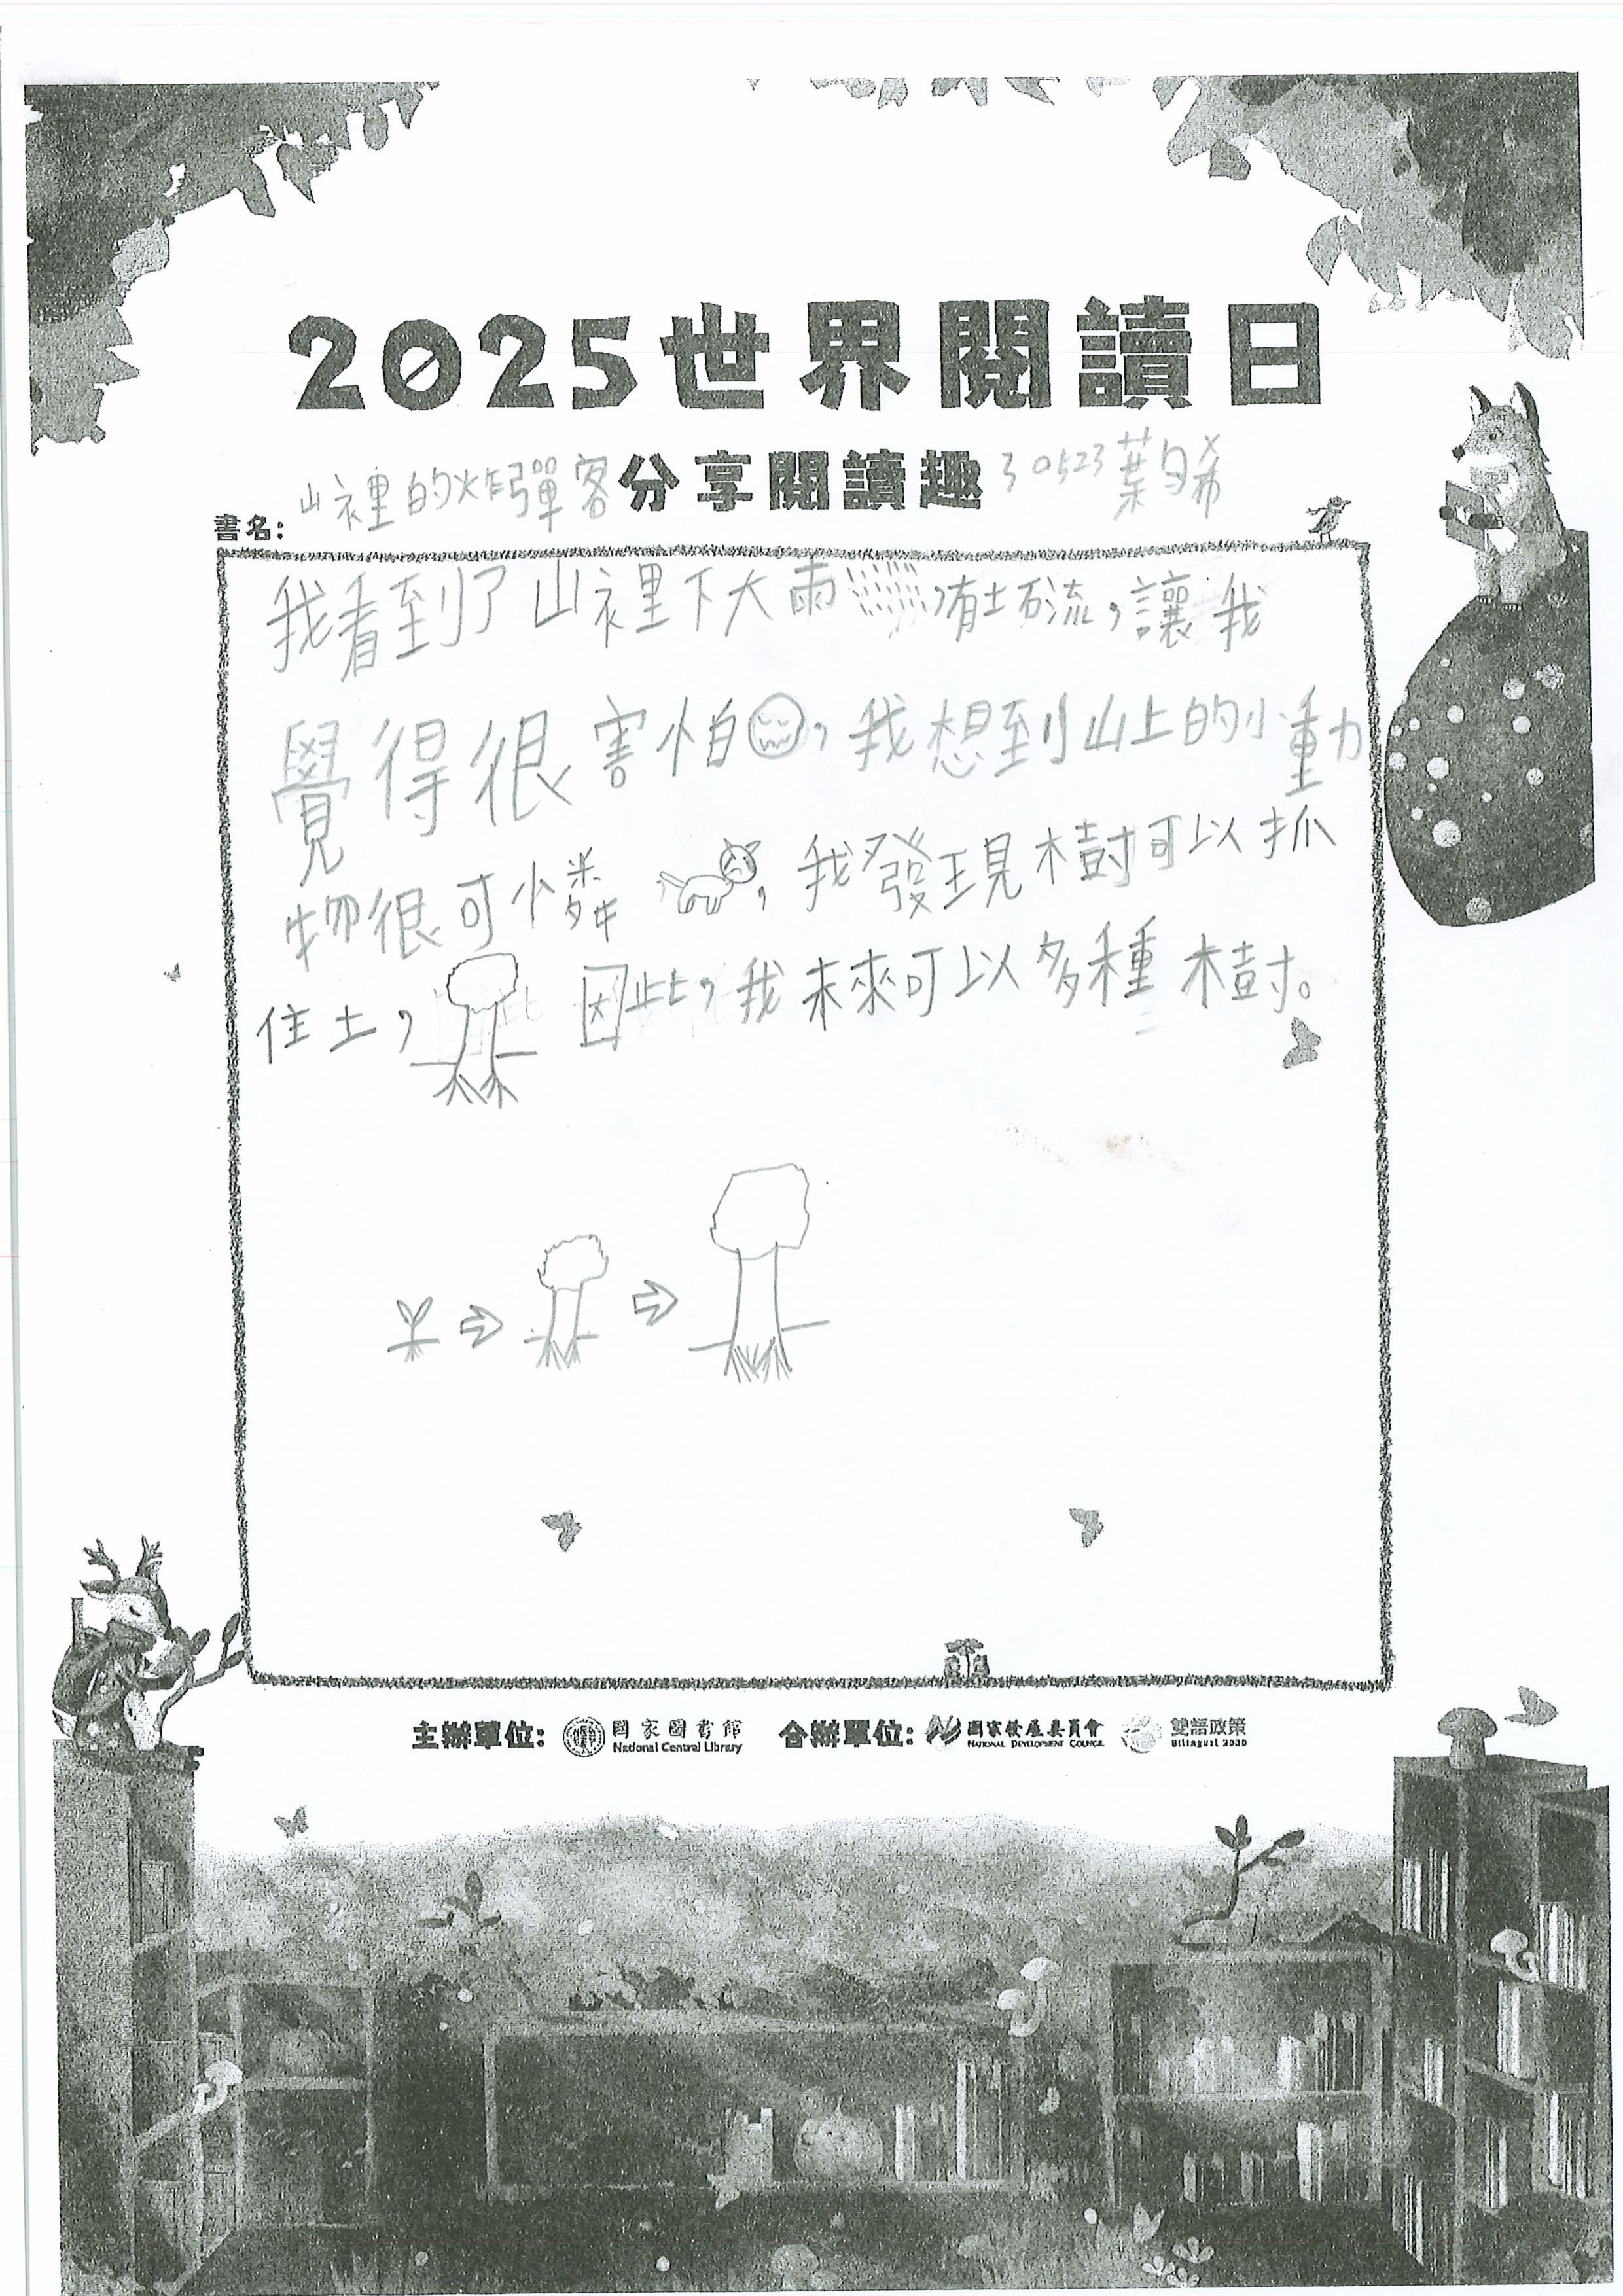 2025世界閱讀日
山裡的炸彈客分享閱讀趣30523葉
書名:
我看到了山裡下大雨,有土石流,讓我
覺得很害怕,我想到山上的小動
物很可憐,我發現木樹可以抓
住土,因此,我未來可以多種樹。
主辦單位: 國家圖書館 合辦單位: 國家發展委員會 雙語政策
National Central Library NATIONAL DEVELOPMENT COUNCIL Bilingual 2030